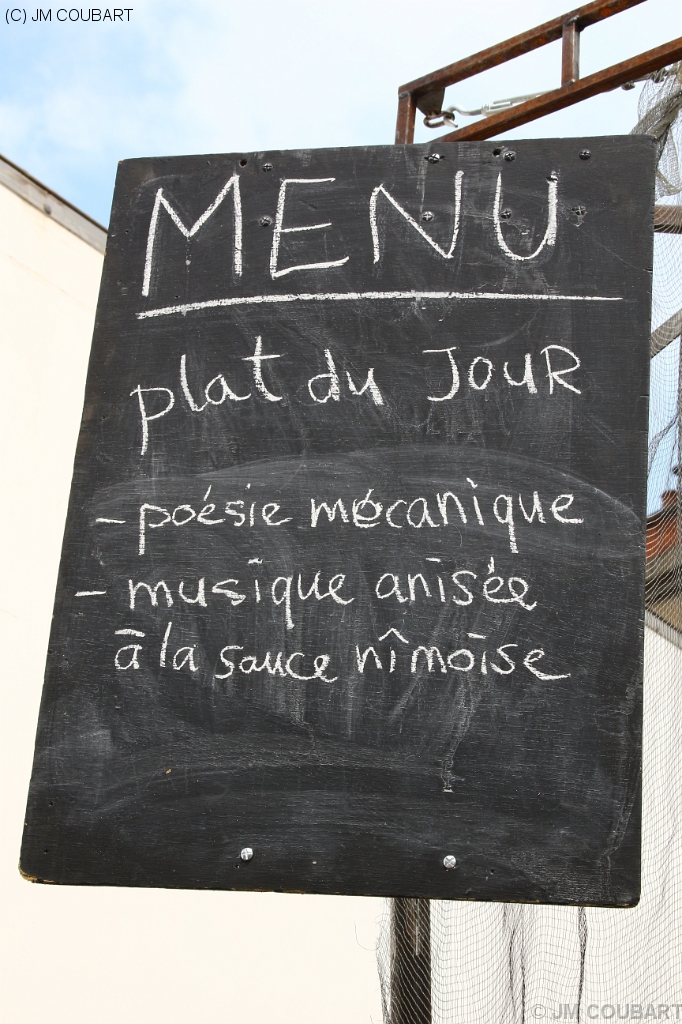 (C) JM COUBART
MENU
plat du JOUR
- poésie mécanique
- musique anisée
à la sauce nîmoise
© JM COUBART